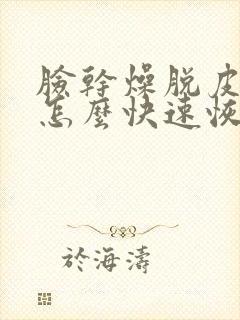 臉幹燥脫皮
怎麼快速恢
於海濤